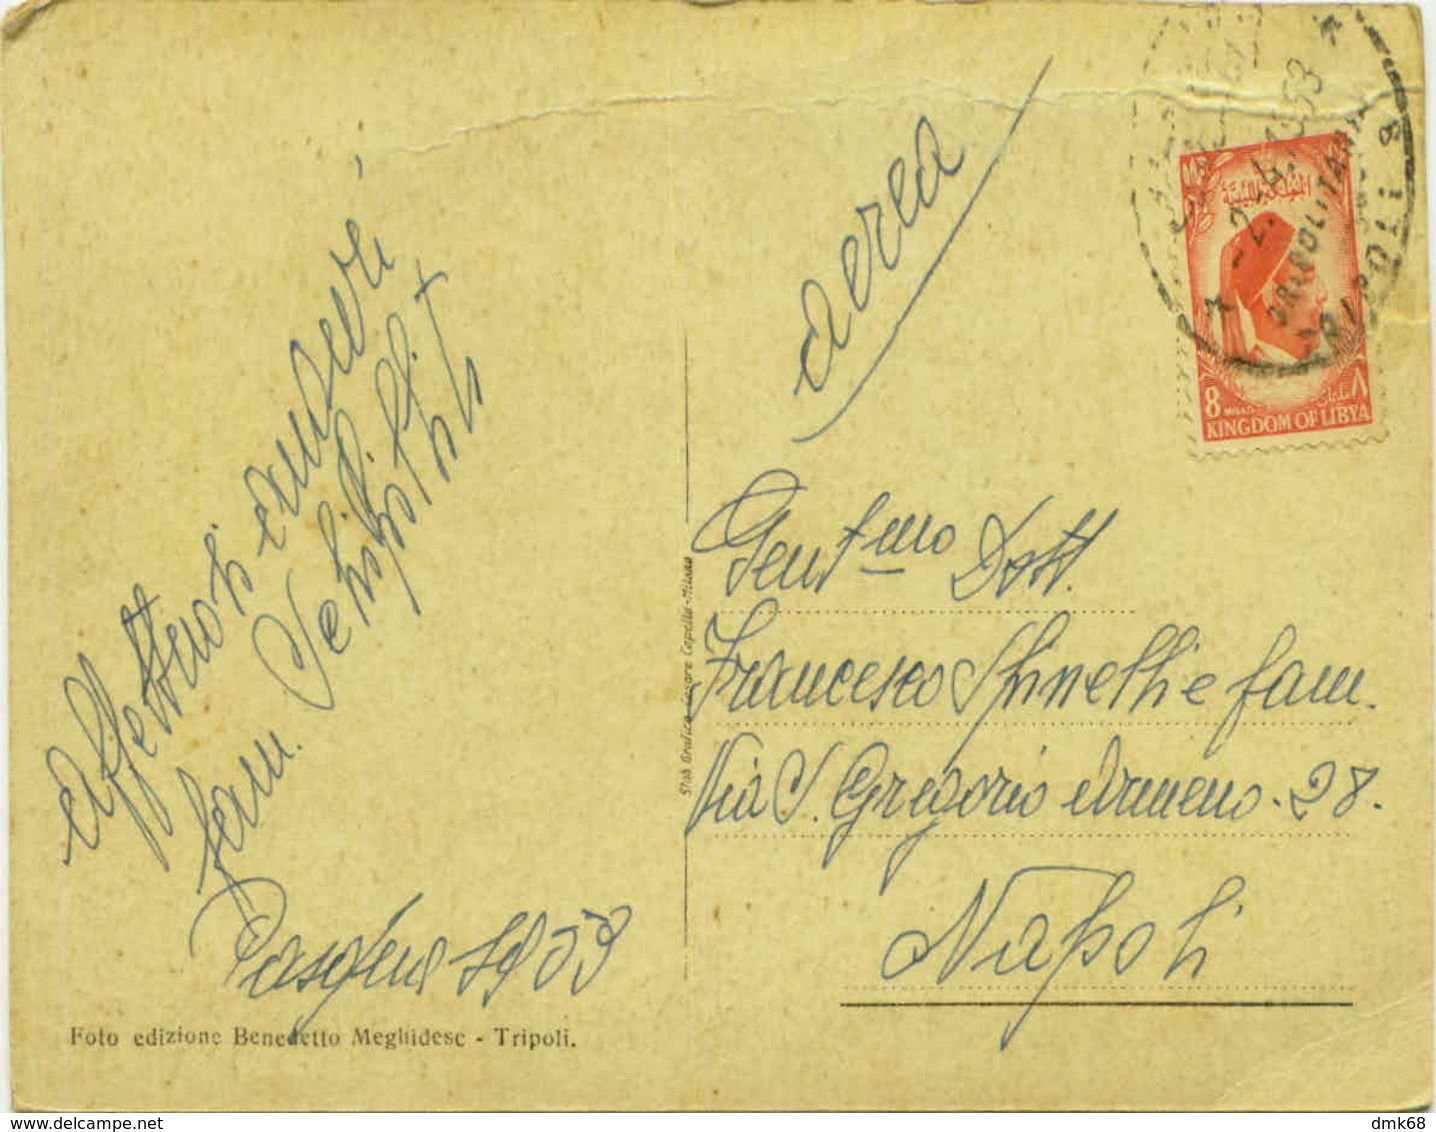 affettuosi auguri
fam.
Pasqua 1953
Foto edizione Benedetto Meghidesc - Tripoli.
Stab Grafico Cesare Capello-Milano
aerea
Gent.mo Dott.
Francesco Spinelli e fam.
Via S. Gregorio Armeno. 28.
Napoli
-2.4.1953
TRIPOLITANIA
TRIPOLI 8
8 MILLS ٨
KINGDOM OF LIBYA
dmk68